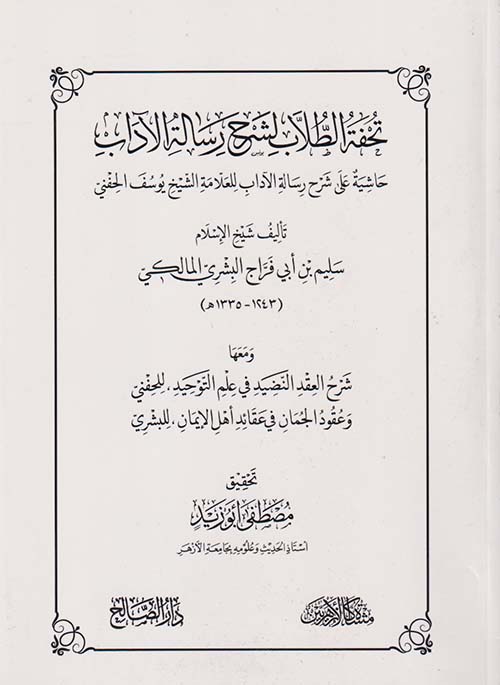 تُحْفَةُ الطُّلَّابِ لِشَرْحِ رِسَالَةِ الآدَابِ
حَاشِيَةٌ عَلَى شَرْحِ رِسَالَةِ الآدَابِ لِلعَلَّامَةِ الشَّيْخِ يُوسُفَ الحِفْنِيِّ
تَأْلِيفُ شَيْخِ الإِسْلَامِ
سَلِيمِ بْنِ أَبِي فَرَّاجٍ البِشْرِيِّ المَالِكِيِّ
(١٢٤٣ - ١٣٣٥هـ)
وَمَعَهَا
شَرْحُ العِقْدِ النَّضِيدِ فِي عِلْمِ التَّوْحِيدِ، لِلحِفْنِيِّ
وَعُقُودُ الجُمَانِ فِي عَقَائِدِ أَهْلِ الإِيمَانِ، لِلبِشْرِيِّ
تَحْقِيق
مُصْطَفَى أَبُو زَيْدٍ
أُسْتَاذِ الحَدِيثِ وَعُلُومِهِ بِجَامِعَةِ الأَزْهَرِ
دَارُ الصَّالِحِ